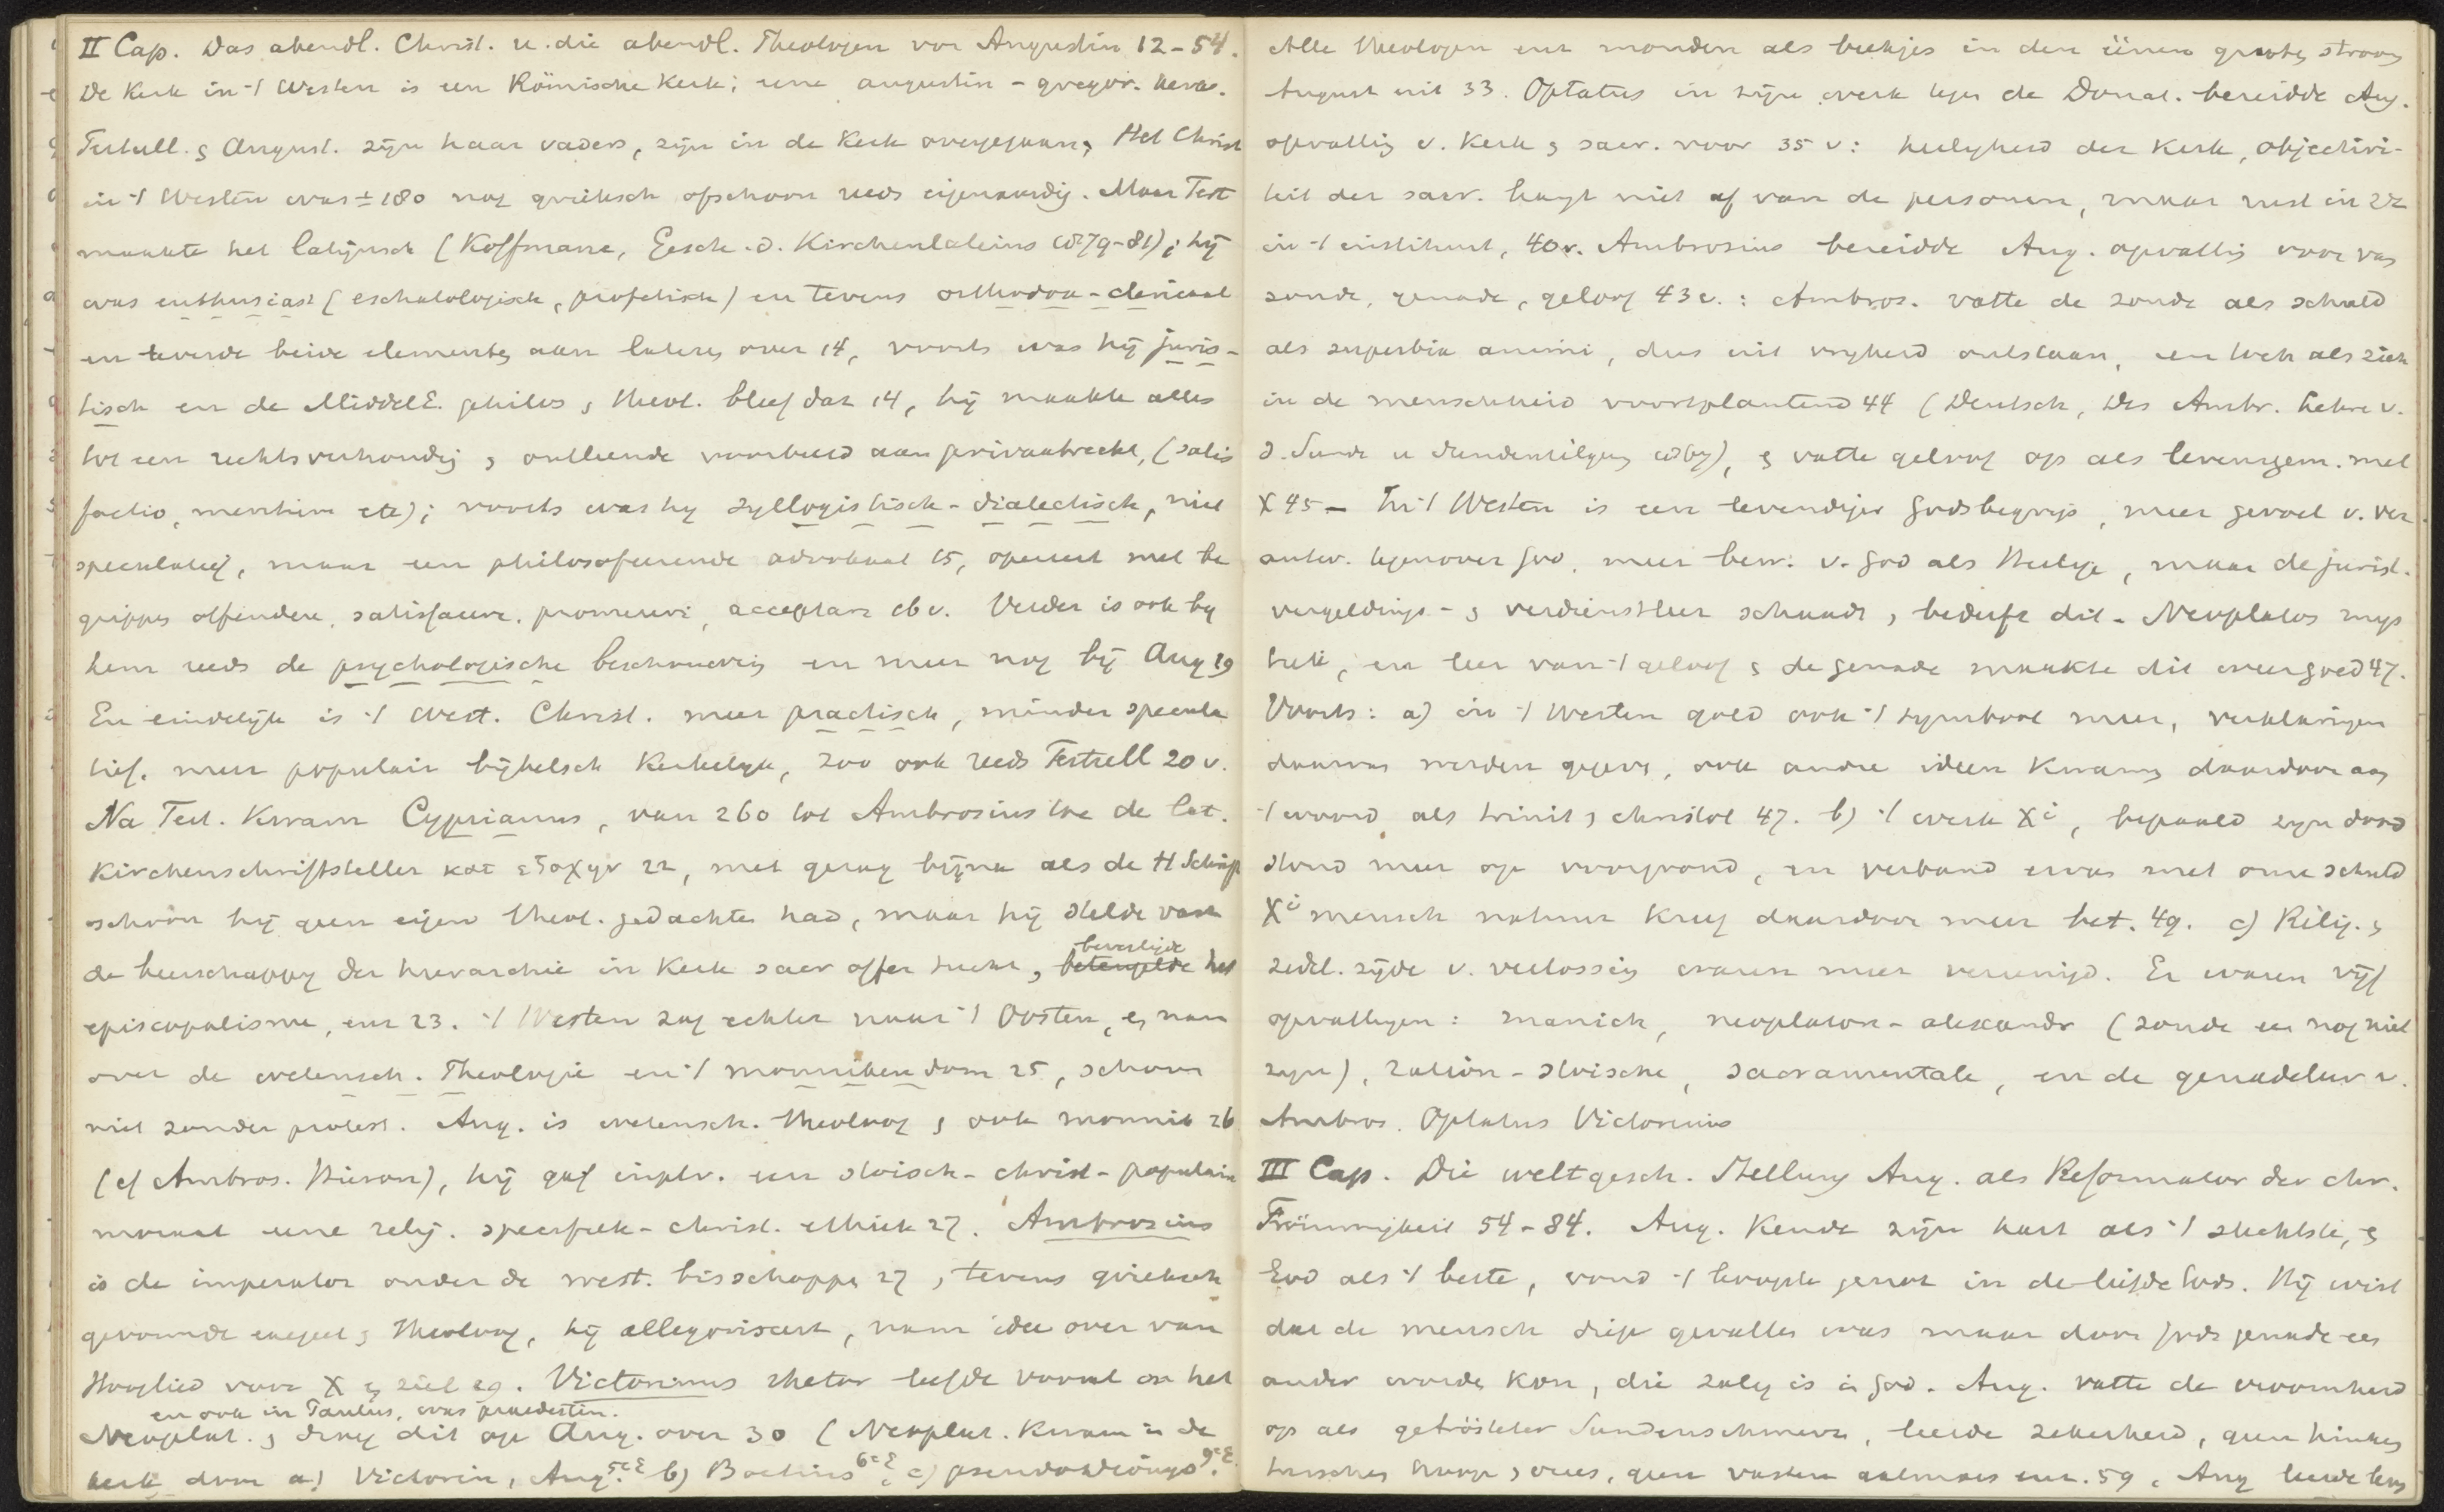 II Cap. Das abendl. Christ. u. die abendl. Theologen vor Augustin 12-54.
De Kerk in 't Westen is een Römische Kerk; eene augustin-gregor.
Tertull. & August. zijn haar vaders, zijn in de Kerk overgegaan, Het Christ
in 't Westen was ± 180 nog grieksch ofschoon reeds eigenaardig. Maar Tert
maakte het latijnsch (Koffmane, Gesch. d. Kirchenlateins 1879-81); hij
was enthusiast (eschatologisch, profetisch) en tevens orthodox-clericaal
en leverde beide elementen aan lateren over 14, voorts was hij juris-
tisch en de MiddelE. philos & theol. bleef dat 14, hij maakte alles
tot een rechtsverhouding & ontleende voorbeeld aan privaatrecht, (satis
factio, meritum etc); voorts was hy syllogistisch-dialectisch, niet
speculatief, maar een philosofeerende advokaat 15, opereert met be
grippen offendere, satisfacere, promereri, acceptare 16 v. Verder is ook by
hem reeds de psychologische beschouwing en meer nog bij Aug 19
En eindelijk is 't West. Christ. meer practisch, minder specula
tief, meer populair bijbelsch Kerkelijk, zoo ook reeds Tertull 20 v.
Na Tert. Kwam Cyprianus, van 260 tot Ambrosius toe de lat.
Kirchenschriftsteller κατ εξοχην 22, met gezag bijna als de H Schrift
schoon hij geen eigen theol. gedachten had, maar hij stelde vast
de heerschappy der hierarchie in Kerk sacr offer tucht, beteugelde het
bevestigde
episcopalisme, enz 23. 't Westen zag echter naar 't Oosten, & nam
over de wetensch. Theologie en 't monnikendom 25, schoon
niet zonder protest. Aug. is wetensch. theoloog & ook monnik 26
(cf Ambros. Hieron), hij gaf in plv. een stoisch-christ-populaire
moraal eene relig. specifiek-christ. ethiek 27. Ambrosius
is de imperator onder de west. bisschoppen 27, tevens grieksch
gevormde exegeet & theoloog, hij allegoriseert, nam idee over van
Hooglied voor X & ziel 29. Victorinus rhetor leefde vooral in het
en ook in Paulus, was praedestin.
Neoplat. & droeg dit op Aug. over 30 (Neoplat. Kwam in de
kerk door a) Victorin, Aug. 5e E b) Boetius 6e E, c) pseudodionys 9e E.
Alle theologen enz monden als beekjes in den éénen grooten stroom
August uit 33. Optatus in zijn werk tegen de Donat. bereidde Aug.
opvatting v. Kerk & sacr. voor 35 v: heiligheid der Kerk, objectivi-
teit der sacr. hangt niet af van de personen, maar rust in
in 't instituut, 40v. Ambrosius bereidde Aug. opvatting voor van
zonde, genade, geloof 43 v.: Ambros. vatte de zonde als schuld
als superbia animi, dus uit vryheid ontstaan, en toch als zich
in de menschheid voortplantend 44 (Deutsch, Des Ambr. Lehre v.
d. Sunde u Sundentilgung 1867), & vatte geloof op als levensgem. met
X 45 - In 't Westen is een levendiger Godsbegrip, meer gevoel v. ver
antw. tegenover God, meer bew. v. God als Heilige, maar de jurist.
vergeldings- & verdienstleer schaadt, bederft dit - Neoplatos mys
tiek, en leer van 't geloof & de genade maakte dit weer goed 47.
Voorts: a) in 't Westen gold ook 't symbool meer, verklaringen
daarvan werden gegeven, ook andre ideen Kwamen daardoor aan
't woord als trinit & christol 47. b) 't werk Xi, bepaald zijn dood
stond meer op voorgrond, in verband met onze schuld
Xi mensch natuur kreeg daardoor meer bet. 49. c) Relig. &
zedel. zijde v. verlossing waren meer vereenigd. Er waren vijf
opvattingen: manich, neoplaton-alexandr (zonde een nog niet
zyn), ration-stoische, sacramenteele, en de genadeleer v.
Ambros. Optatus Victorinus
III Cap. Die weltgesch. Stellung Aug. als Reformator der chr.
Frömmigkeit 54-84. Aug. Kende zijn hart als 't slechtste, &
God als 't beste, vond 't hoogste genot in de liefde Gods. Hij wist
dat de mensch diep gevallen was maar door Gods genade een
ander worden kon, die zalig is in God. Aug. vatte de vroomheid
op als getrösteter Sundenschmerz, leerde zekerheid, geen hinken
tusschen hoop & vrees, geen vasten aalmoes enz. 59, Aug leerde